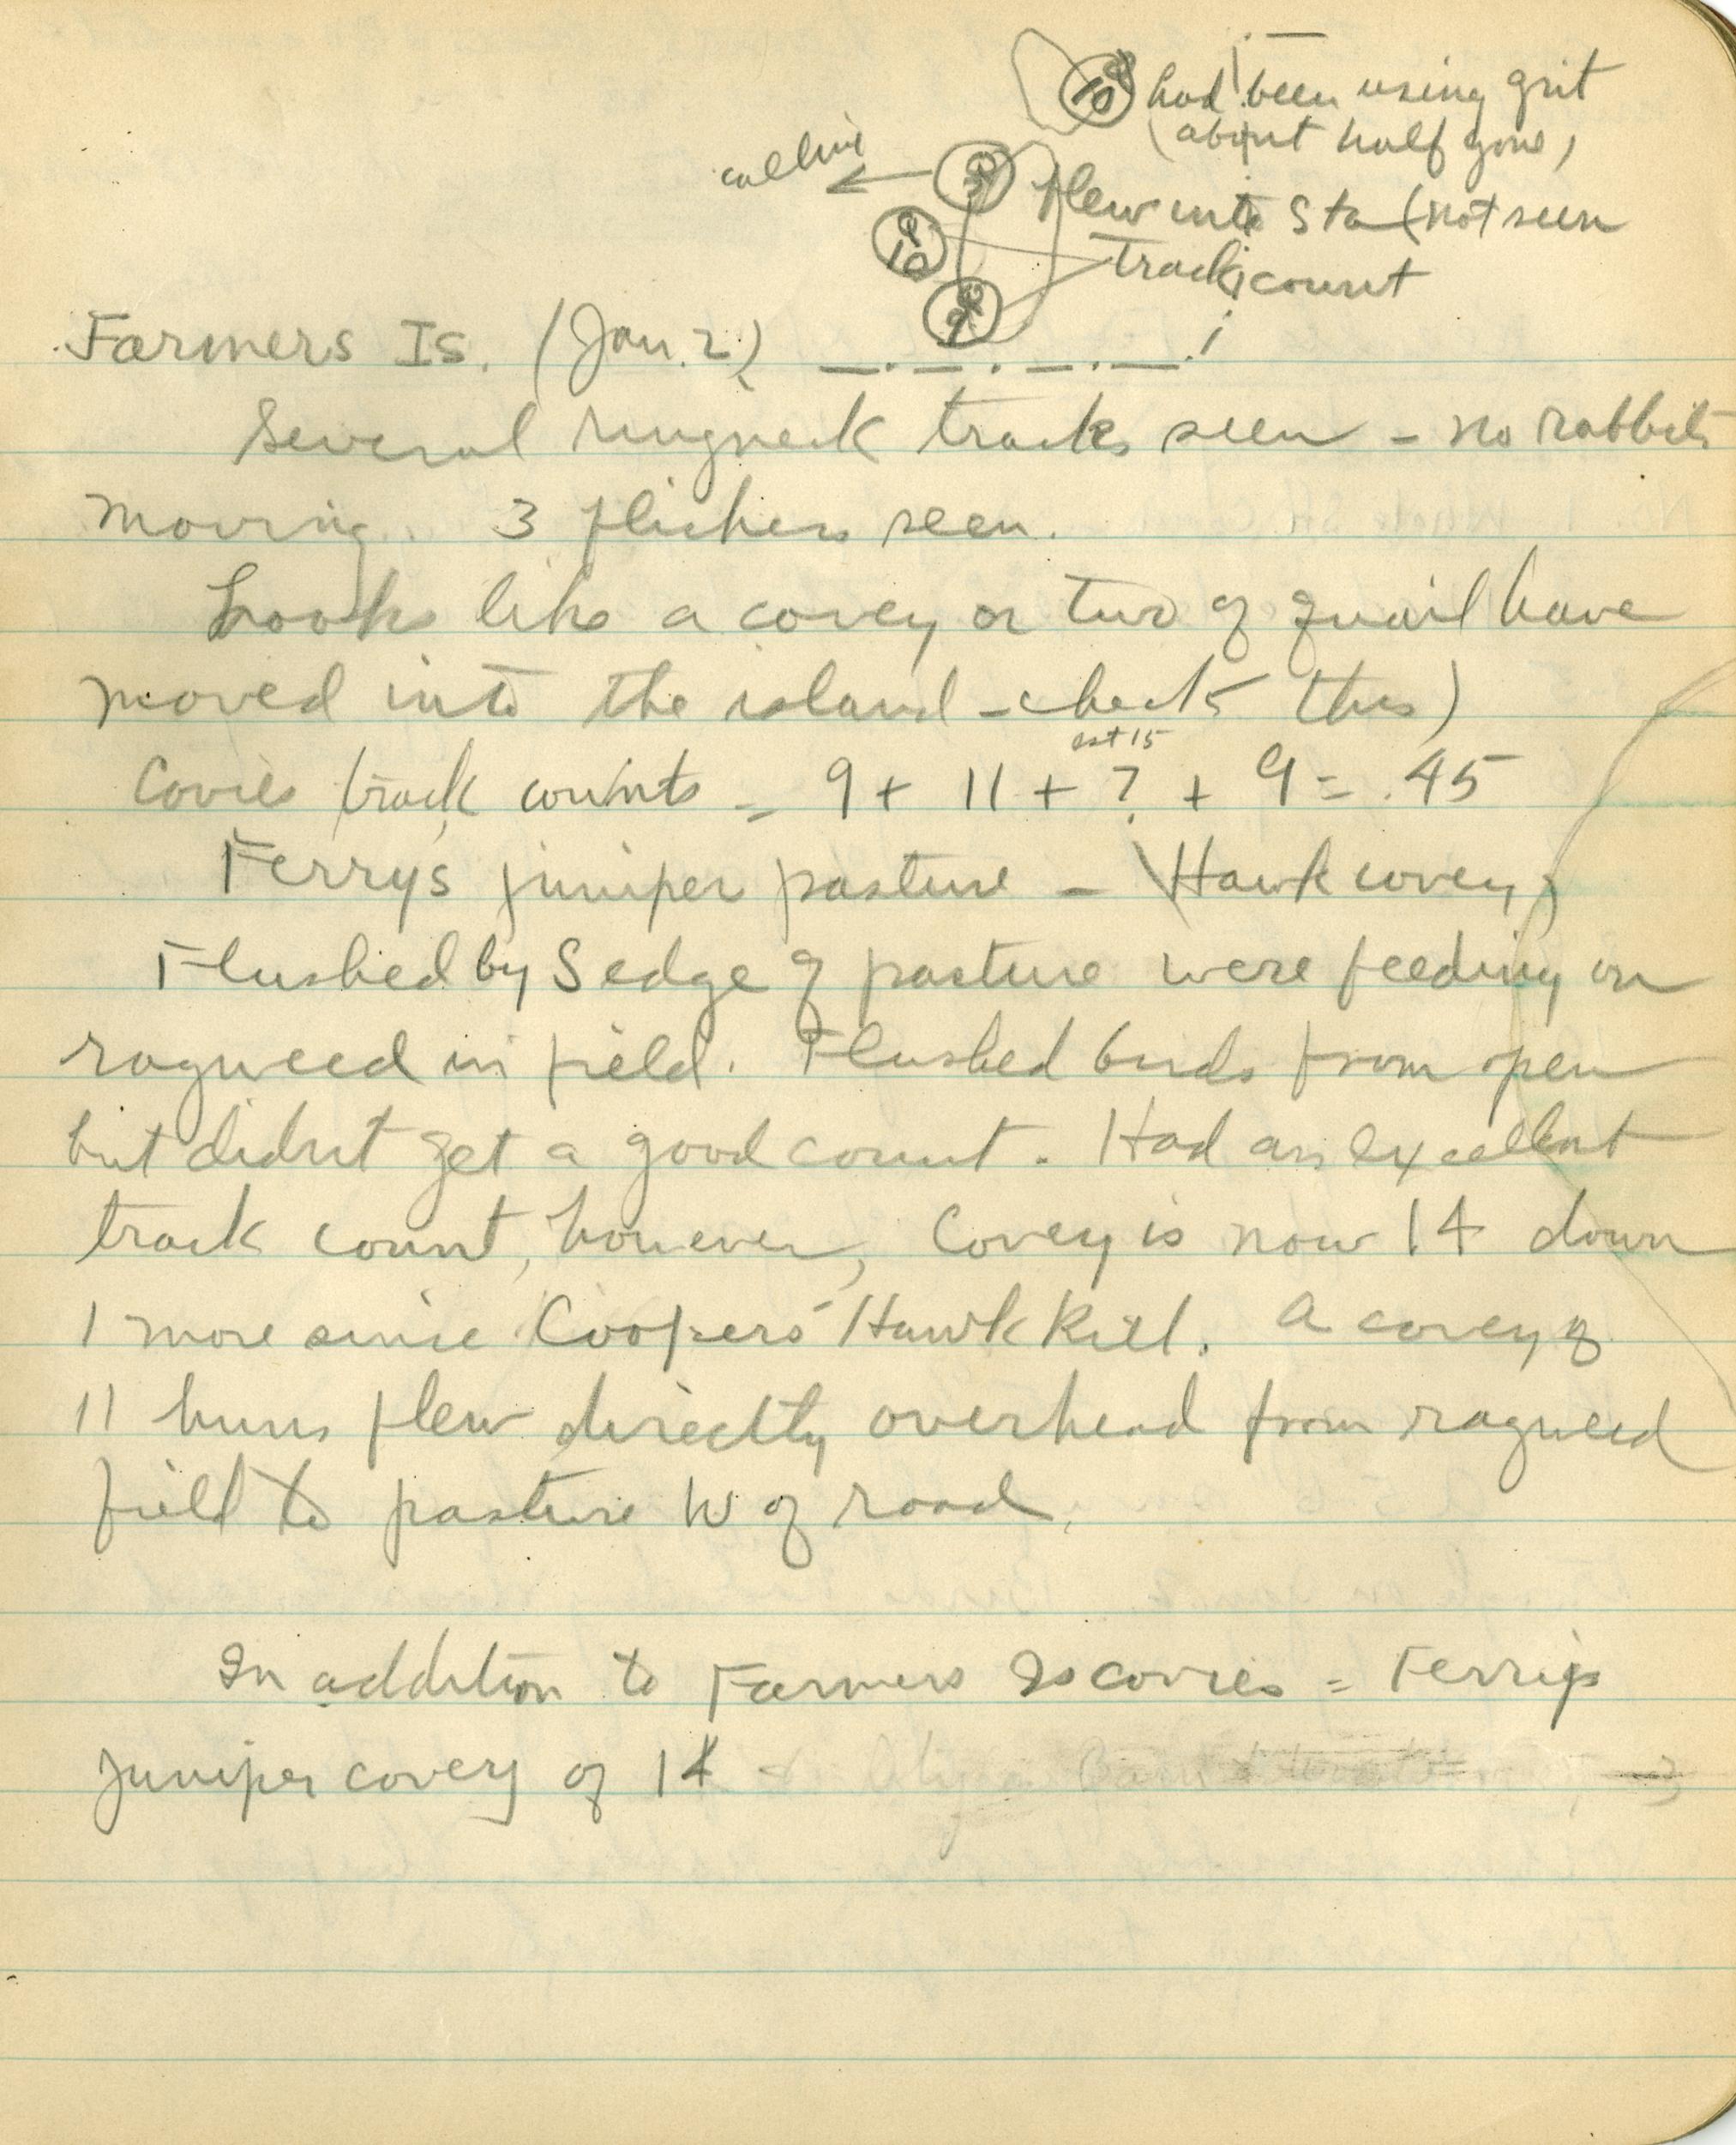 had been using grit
(about half gone)
calling
flew into Sta (not seen
10
track count
9
Farmers Is. (Jan. 2)
Several ringneck tracks seen - no rabbits
moving. 3 flickers seen.
Looks like a covey or two of quail have
moved into the island - check this)
est 15
Covies track counts = 9 + 11 + ? + 9 = 45
Ferrys juniper pasture - (Hawk covey)
Flushed by S edge of pasture were feeding on
ragweed in field. Flushed birds from open
but didnt get a good count. Had an excellent
track count, however, Covey is now 14 down
1 more since Coopers' Hawk Kill. A covey of
11 huns flew directly overhead from ragweed
field to pasture W of road.
In addition to Farmers Is covies = Ferrys
Juniper covey of 14